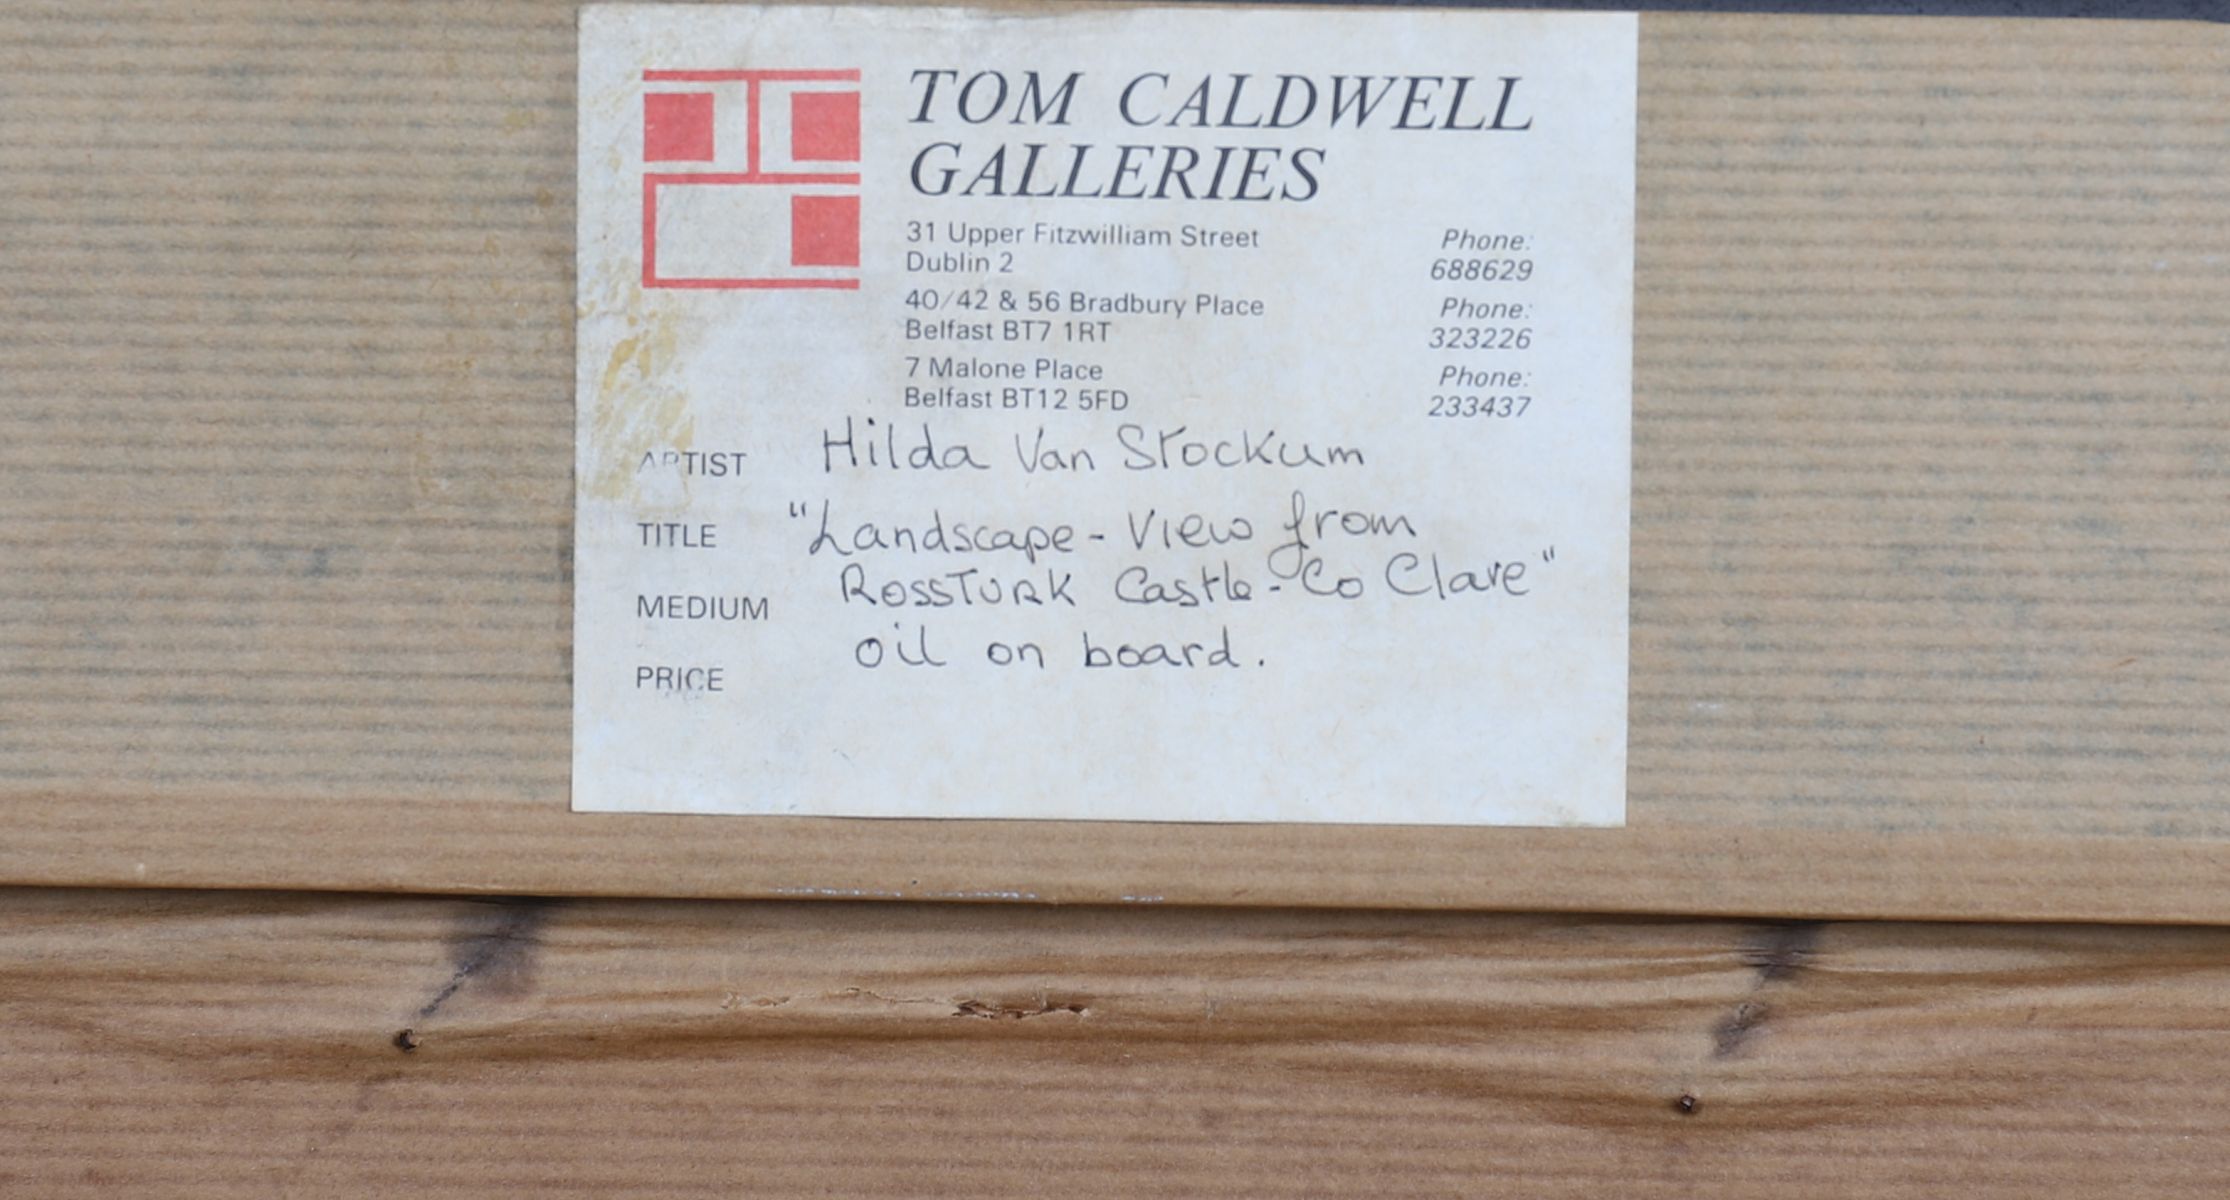 TOM CALDWELL
GALLERIES
31 Upper Fitzwilliam Street Phone:
Dublin 2 688629
40/42 & 56 Bradbury Place Phone:
Belfast BT7 1RT 323226
7 Malone Place Phone:
Belfast BT12 5FD 233437
ARTIST Hilda Van Stockum
TITLE "Landscape - View from
RossTURK Castle - Co Clare"
MEDIUM oil on board.
PRICE